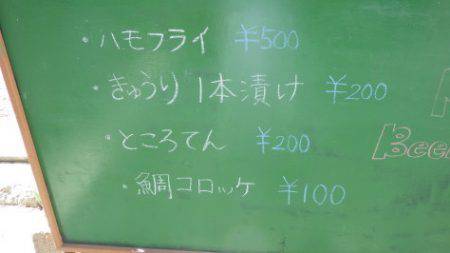 ・ハモフライ ¥500
・きゅうり1本漬け ¥200
・ところてん ¥200
・鯛コロッケ ¥100
Beer